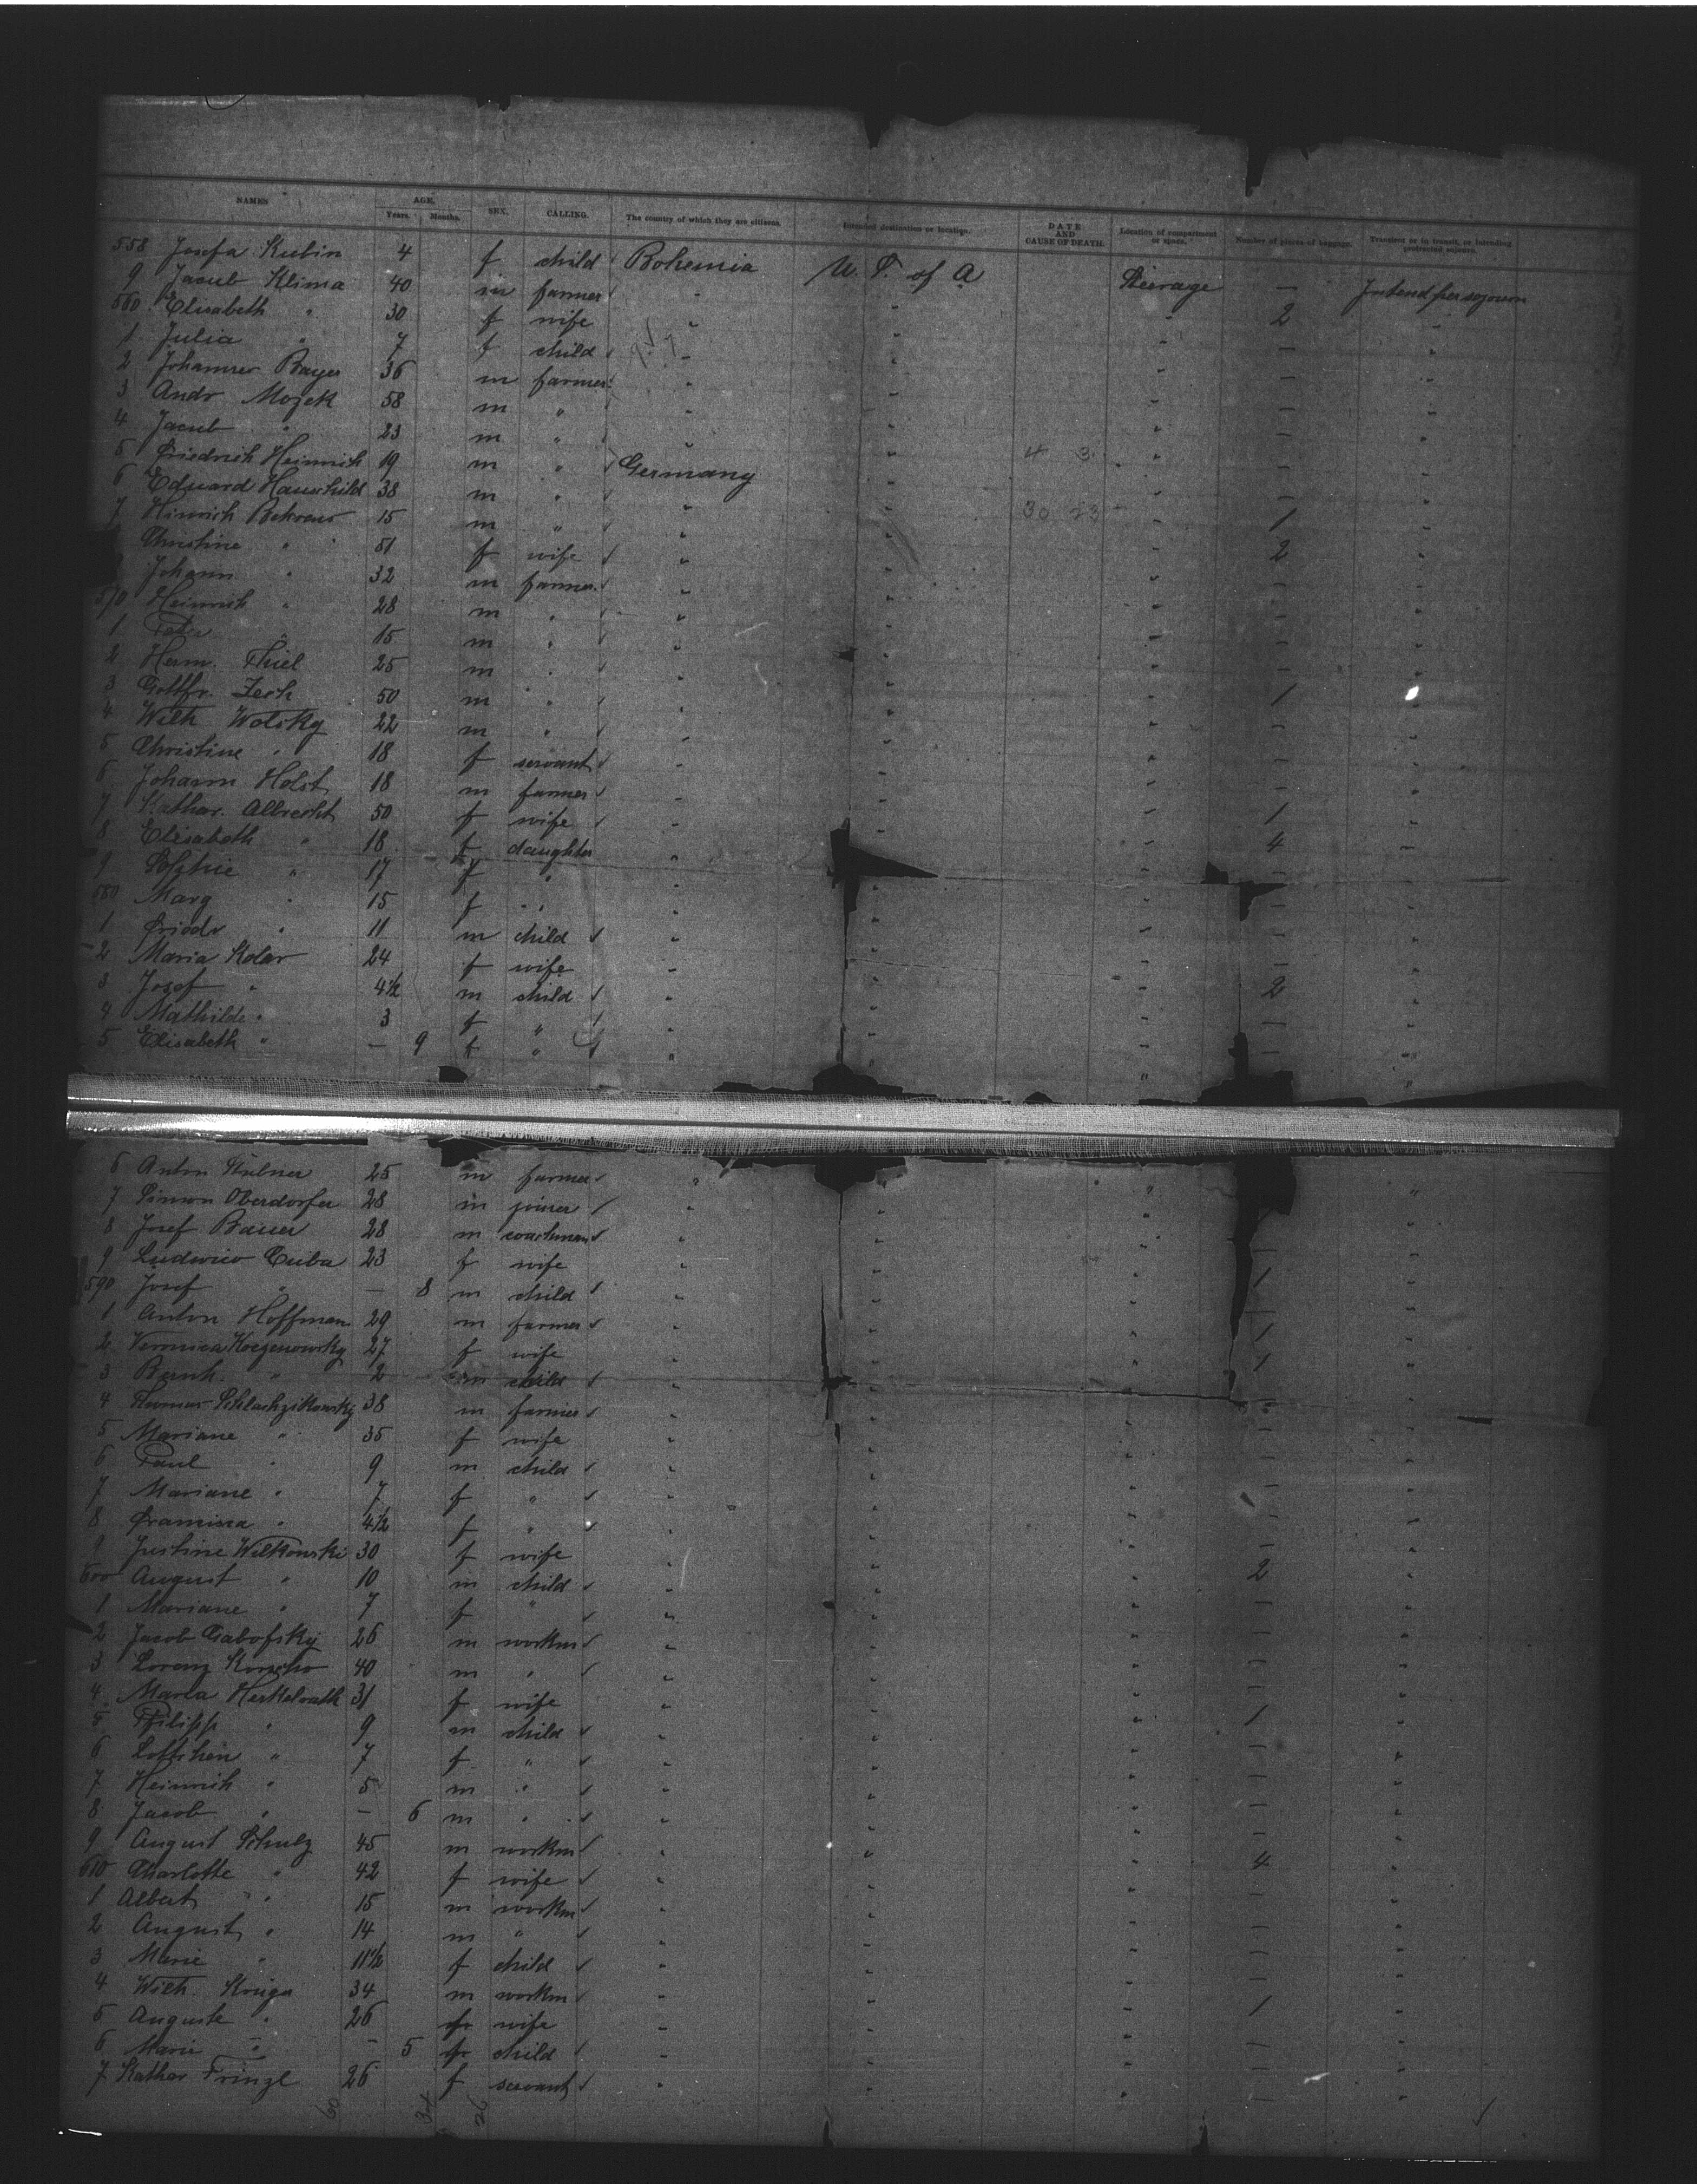 NAMES AGE. Years. Months. SEX. CALLING. The country of which they are citizens. Intended destination or location. DATE AND CAUSE OF DEATH. Location of compartment or space. Number of pieces of baggage. Transient or in transit, or intending protracted sojourn.
558 Josefa Kubin 4 f child Bohemia U. S. of A Steerage — Intend per sojourn
9 Jacub Klima 40 m farmer " " " 2 "
560 Elisabeth " 30 f wife " " " — "
1 Julia " 7 f child " " " — "
2 Bayer 36 m farmer " " " — "
3 Andr Mozek 58 m " " " " — "
4 Jacub " 23 m " " " " — "
5 Friedrich Heinrich 19 m " Germany " " — "
6 Eduard Hauschild 38 m " " " " 1 "
7 Hinrich Behrens 15 m " " " " 2 "
Christine " 51 f wife " " " — "
Johann " 32 m farmer " " " — "
570 Heinrich " 28 m " " " " — "
1 Peter " 15 m " " " " — "
2 Herm. Thiel 25 m " " " " 1 "
3 Gottfr. Zech 50 m " " " " — "
4 Wilh Wolsky 22 m " " " " — "
5 Christine " 18 f servant " " " — "
6 Johann Holst 18 m farmer " " " 1 "
7 Kathar. Albrecht 50 f wife " " 4 "
8 Elisabeth " 18 f daughter " " " — "
9 Sophie " 17 f " " " " — "
580 Marg " 15 f " " " " — "
1 Friedr " 11 m child " " " — "
2 Maria Kolar 24 f wife " " " 2 "
3 Josef " 4½ m child " " " — "
4 Mathilde " 3 f " " " " — "
5 Elisabeth " — 9 f " " " " — "
6 Anton 25 m farmer " " " "
7 Simon Oberdorfer 28 m joiner " " " "
8 Josef Bauer 28 m coachman " " " — "
9 Ludovico Cuba 23 f wife " " " 1 "
590 Josef " — 8 m child " " " — "
1 Anton Hoffman 29 m farmer " " " 1 "
2 Veronica 27 f wife " " " 1 "
3 Bernh. " 2 m child " " " — "
4 38 m farmer " " " — "
5 Mariane " 35 f wife " " " — "
6 Paul " 9 m child " " " — "
7 Mariane " 7 f " " " " — "
8 " 4½ f " " " " — "
9 Justine Wilkonski 30 f wife " " " 2 "
600 August " 10 m child " " " — "
1 Mariane " 7 f " " " " — "
2 Jacob 26 m workm " " " — "
3 Lorenz 40 m " " " " — "
4 Maria Herkelrath 31 f wife " " " 1 "
5 Philipp " 9 m child " " " — "
6 Lottchen " 7 f " " " " — "
7 Heinrich " 5 m " " " " — "
8 Jacob " — 6 m " " " " — "
9 August Schulz 45 m workm " " " 4 "
610 Charlotte " 42 f wife " " " — "
1 Albert " 15 m workm " " " — "
2 August " 14 m " " " " — "
3 Marie " 11½ f child " " " — "
4 Wilh. Kruger 34 m workm " " " 1 "
5 Auguste " 26 f wife " " " — "
6 Marie " — 5 f child " " " — "
7 Kathar Prinzl 26 f servant " " " — "